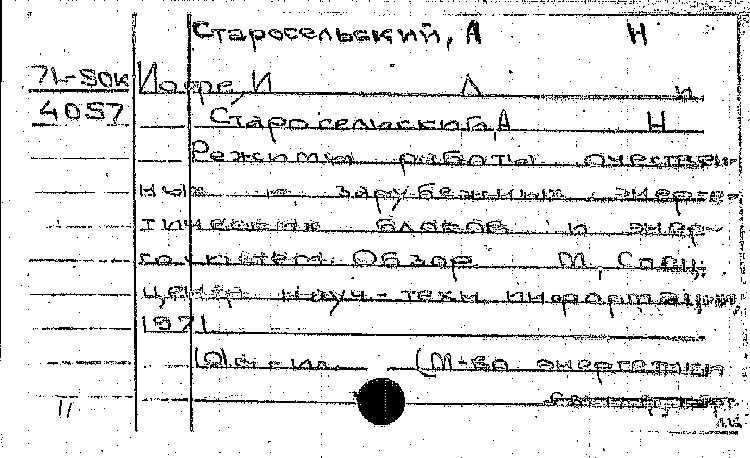 Старосельский, А Н
71-50к Иофре, И Л и
4057 Старосельский, А Н
Режимы работы отечествен-
ных и зарубежных энерге-
тических блоков и энер-
госистем. Обзор М,
центр науч-техн информации,
1971
ил (М-во энергетики
11